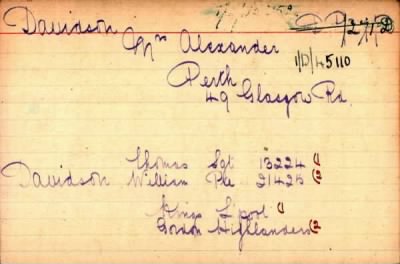 Davidson
Mrs Alexander
1/D/45110
Perth
49 Glasgow Rd.
Thomas Sgt 13224 (1
Davidson William Pte 21425 (2
Kings L'pool (1
Gordon Highlanders (2